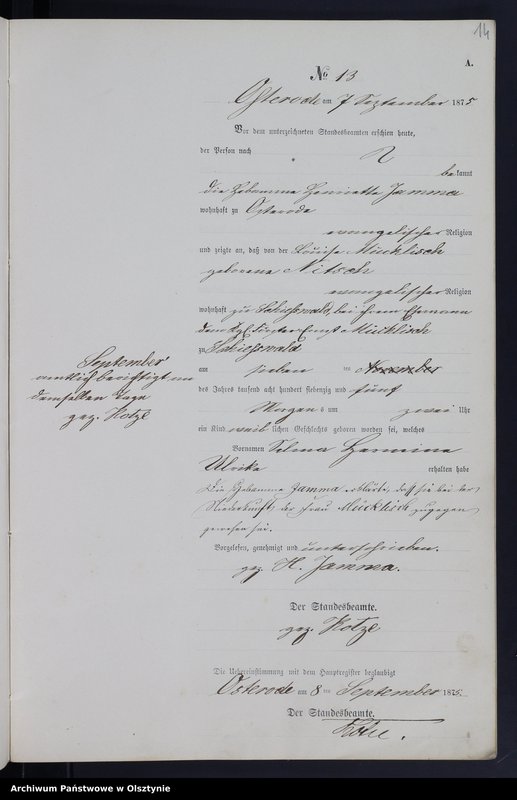 14
A.
No 13
Osterode am 7 September 1875
Vor dem unterzeichneten Standesbeamten erschien heute,
der Person nach
bekannt
die Hebamme Henriette Jamma
wohnhaft zu Osterode
evangelischer Religion
und zeigte an, daß von der Louise Mücklisch
geborene Nitsch
evangelischer Religion
wohnhaft zu Schießwald, bei ihrem Ehemann
dem Kgl. Förster Ernst Mücklisch
zu Schießwald
am sieben ten November
des Jahres tausend acht hundert siebenzig und fünf
Morgens um zwei Uhr
ein Kind weiblichen Geschlechts geboren worden sei, welches
Vornamen Selma Hermine
Ulrike erhalten habe
Die Hebamme Jamma erklärte, daß sie bei der
Niederkunft der Frau Mücklisch zugegen
gewesen sei.
Vorgelesen, genehmigt und unterschrieben.
gez. H. Jamma.
September
amtlich berichtigt am
demselben Tage
gez. Kotze
Der Standesbeamte.
gez. Kotze
Die Uebereinstimmung mit dem Hauptregister beglaubigt
Osterode am 8 ten September 1875.
Der Standesbeamte.
Kotze.
Archiwum Państwowe w Olsztynie